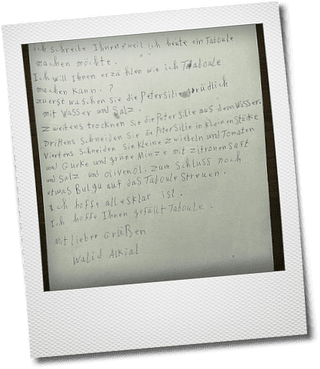 ich schreibe Ihnen, weil ich heute ein Taboule
machen möchte.
Ich will Ihnen erzählen wie ich Taboule
machen kann.?
zuerst waschen Sie die Petersilie gründlich
mit Wasser und Salz.
zweitens trocknen Sie die Petersilie aus dem Wasser.
Drittens schneiden Sie die Petersilie in kleinem Stüke
Viertens schneiden Sie kleine zwiebeln und Tomaten
und Gurke und grüne Minze mit zitronensaft
und Salz und olivenöl. zum Schluss noch
etwas Bulgu auf das Taboule streuen.
Ich hoffe alles klar ist.
Ich hoffe Ihnen gefällt Taboule.
Mit lieber Grüßen
Walid